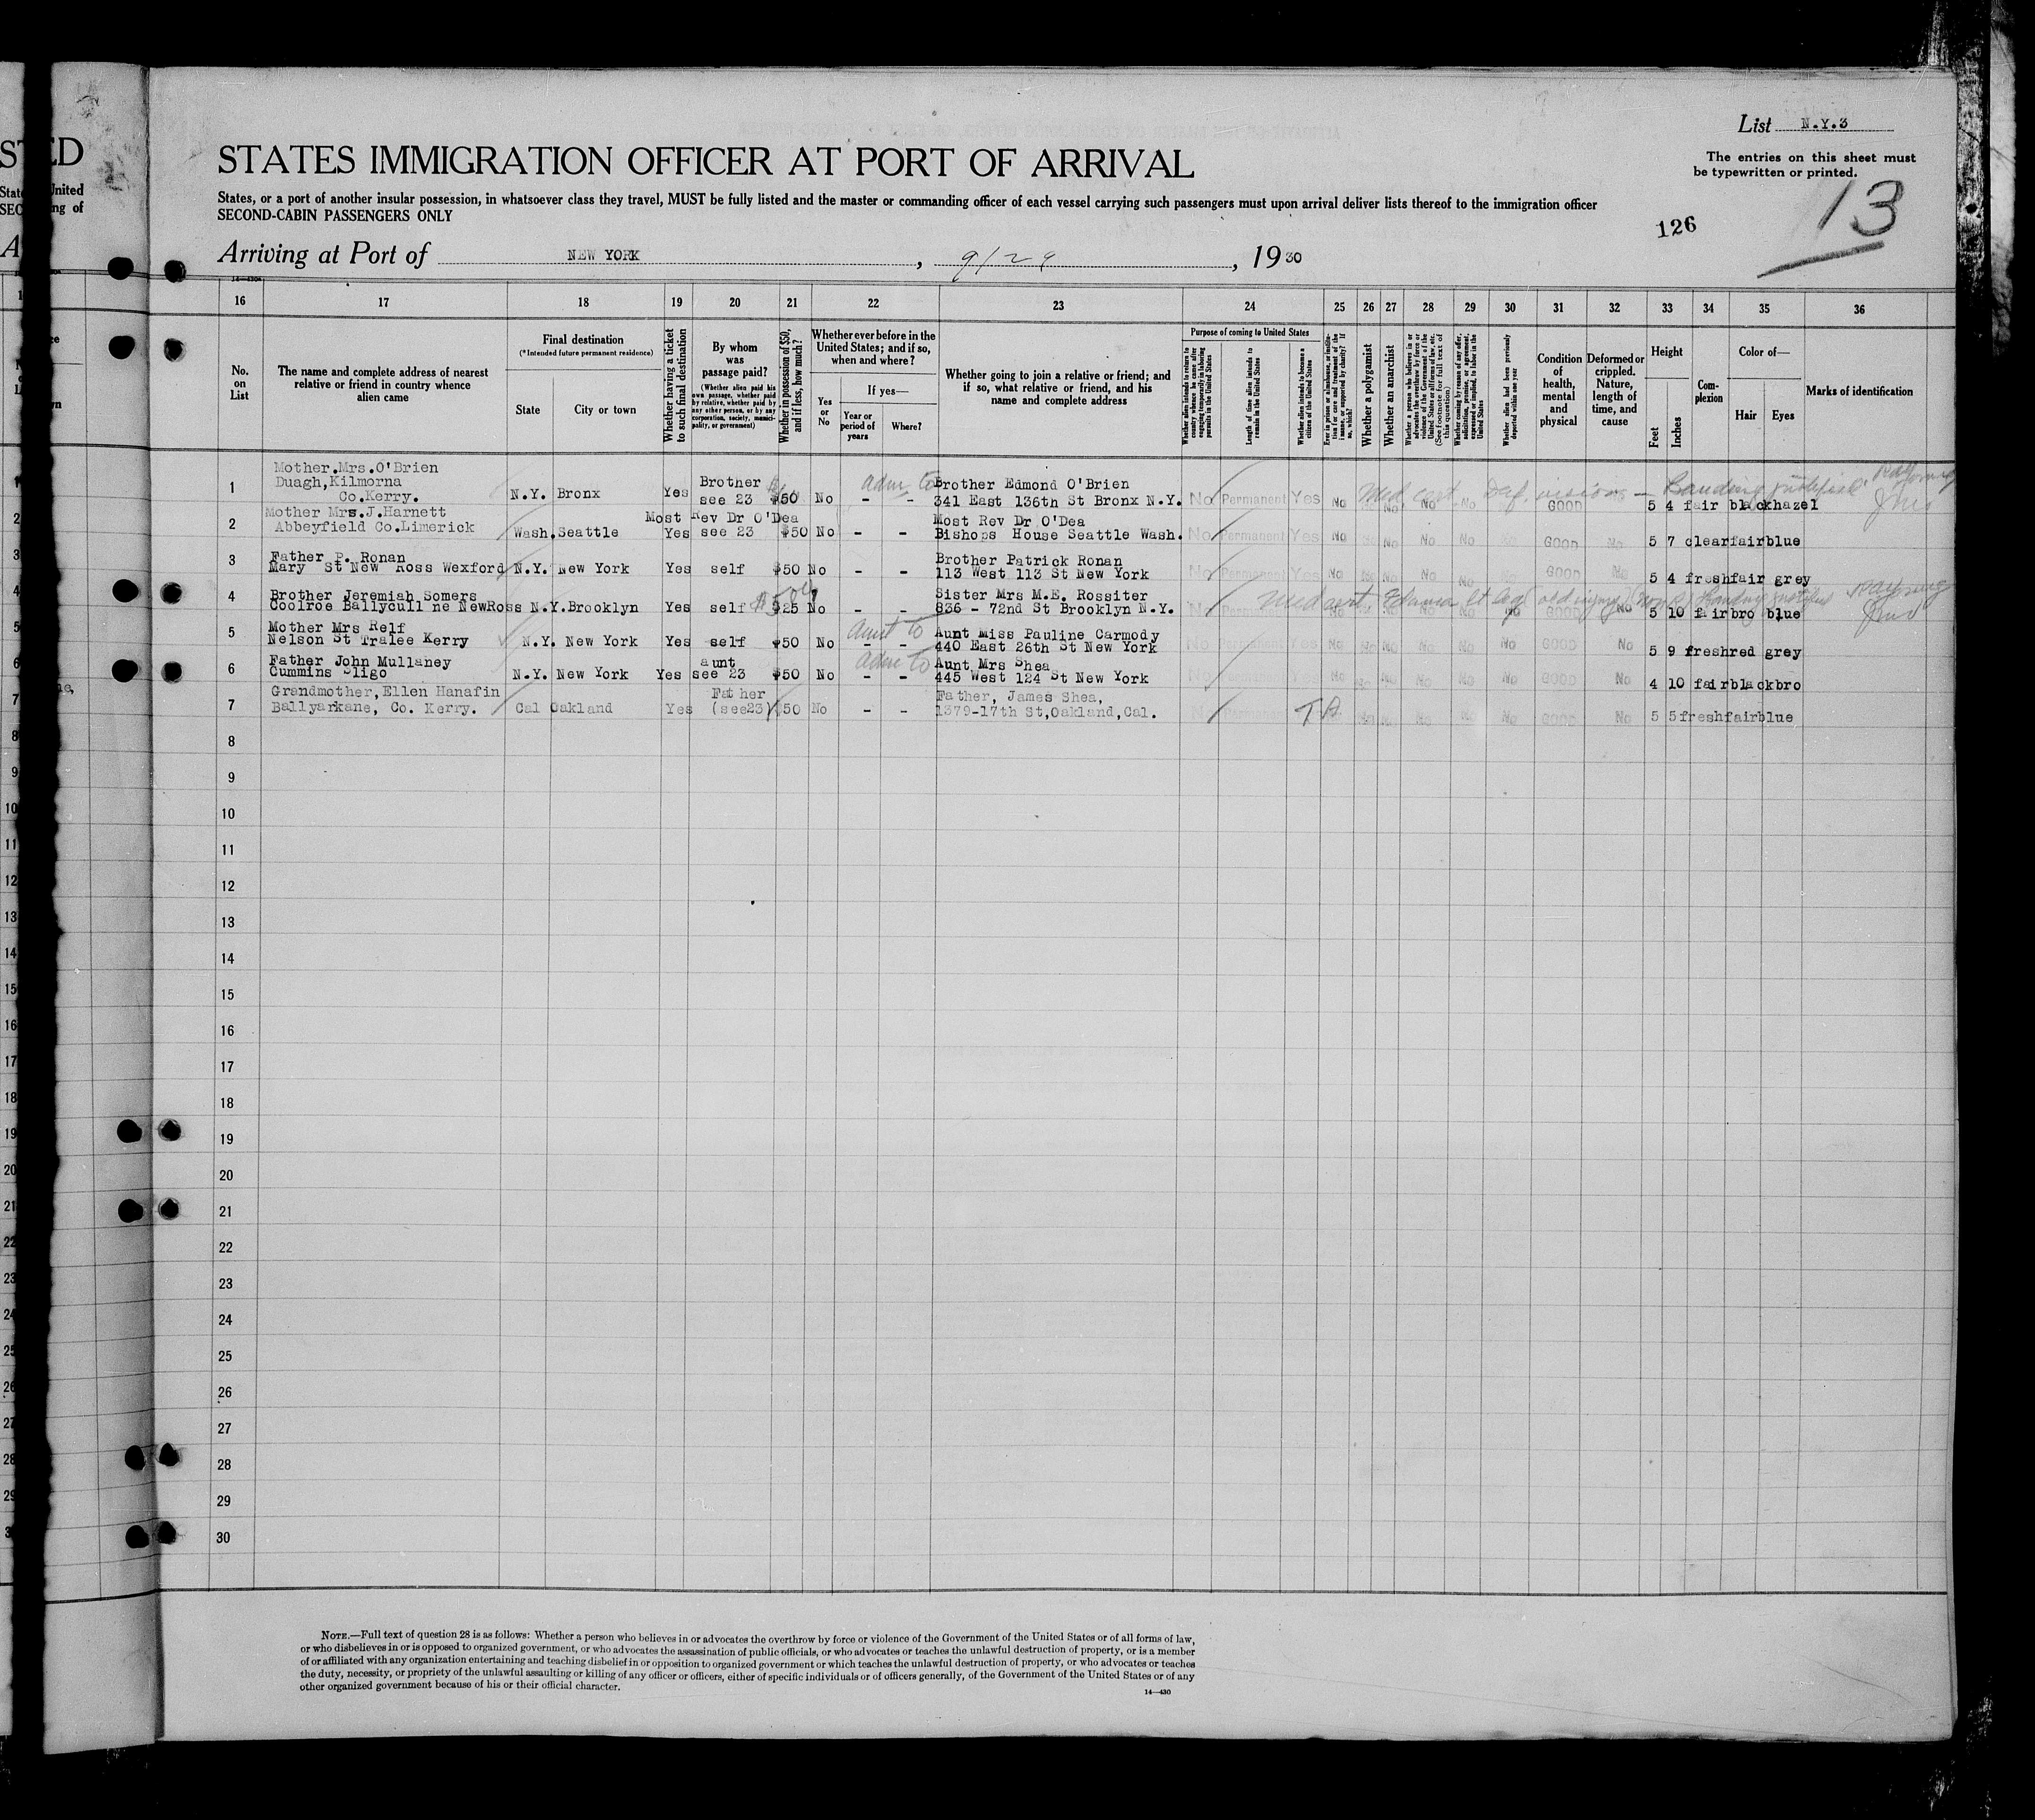 List N.Y.3
STATES IMMIGRATION OFFICER AT PORT OF ARRIVAL
The entries on this sheet must
be typewritten or printed.
States, or a port of another insular possession, in whatsoever class they travel, MUST be fully listed and the master or commanding officer of each vessel carrying such passengers must upon arrival deliver lists thereof to the immigration officer
SECOND-CABIN PASSENGERS ONLY
126
13
Arriving at Port of NEW YORK, 9/29, 1930
16 17 18 19 20 21 22 23 24 25 26 27 28 29 30 31 32 33 34 35 36
No. on List
The name and complete address of nearest relative or friend in country whence alien came
Final destination
(*Intended future permanent residence)
State
City or town
Whether having a ticket to such final destination
By whom was passage paid?
(Whether alien paid his own passage, whether paid by relative, whether paid by any other person, or by any corporation, society, municipality, or government)
Whether in possession of $50, and if less, how much?
Whether ever before in the United States; and if so, when and where?
Yes or No
If yes—
Year or period of years
Where?
Whether going to join a relative or friend; and if so, what relative or friend, and his name and complete address
Purpose of coming to United States
Length of time alien intends to remain in the United States
Whether alien intends to become a citizen of the United States
Whether a polygamist
Whether an anarchist
Condition of health, mental and physical
Deformed or crippled. Nature, length of time, and cause
Height
Feet
Inches
Complexion
Color of—
Hair
Eyes
Marks of identification
1 Mother.Mrs.O'Brien
Duagh,Kilmorna
Co.Kerry. N.Y. Bronx Yes Brother see 23 $50 No - - Brother Edmond O'Brien
341 East 136th St Bronx N.Y. No Permanent Yes No No No No GOOD 5 4 fair black hazel
2 Mother Mrs.J.Harnett
Abbeyfield Co.Limerick Wash. Seattle Yes Most Rev Dr O'Dea see 23 $50 No - - Most Rev Dr O'Dea
Bishops House Seattle Wash. No Permanent Yes No No No No No GOOD No 5 7 clear fair blue
3 Father P. Ronan
Mary St New Ross Wexford N.Y. New York Yes self $50 No - - Brother Patrick Ronan
113 West 113 St New York No Permanent Yes No No No No No No GOOD No 5 4 fresh fair grey
4 Brother Jeremiah Somers
Coolroe Ballycullne NewRoss N.Y. Brooklyn Yes self $25 No - - Sister Mrs M.E. Rossiter
836 - 72nd St Brooklyn N.Y. No Permanent Yes No No No No No No GOOD No 5 10 fair bro blue
5 Mother Mrs Relf
Nelson St Tralee Kerry N.Y. New York Yes self $50 No - - Aunt Miss Pauline Carmody
440 East 26th St New York No Permanent Yes No No No No No No GOOD No 5 9 fresh red grey
6 Father John Mullaney
Cummins Sligo N.Y. New York Yes aunt see 23 $50 No - - Aunt Mrs Shea
445 West 124 St New York No Permanent Yes No No No No No No GOOD No 4 10 fair black bro
7 Grandmother, Ellen Hanafin
Ballyarkane, Co. Kerry. Cal Oakland Yes Father (see23) $50 No - - Father, James Shea,
1379-17th St,Oakland,Cal. No Permanent No No No No No No GOOD No 5 5 fresh fair blue
8
9
10
11
12
13
14
15
16
17
18
19
20
21
22
23
24
25
26
27
28
29
30
NOTE.—Full text of question 28 is as follows: Whether a person who believes in or advocates the overthrow by force or violence of the Government of the United States or of all forms of law,
or who disbelieves in or is opposed to organized government, or who advocates the assassination of public officials, or who advocates or teaches the unlawful destruction of property, or is a member
of or affiliated with any organization entertaining and teaching disbelief in or opposition to organized government or which teaches the unlawful destruction of property, or who advocates or teaches
the duty, necessity, or propriety of the unlawful assaulting or killing of any officer or officers, either of specific individuals or of officers generally, of the Government of the United States or of any
other organized government because of his or their official character.
14—430